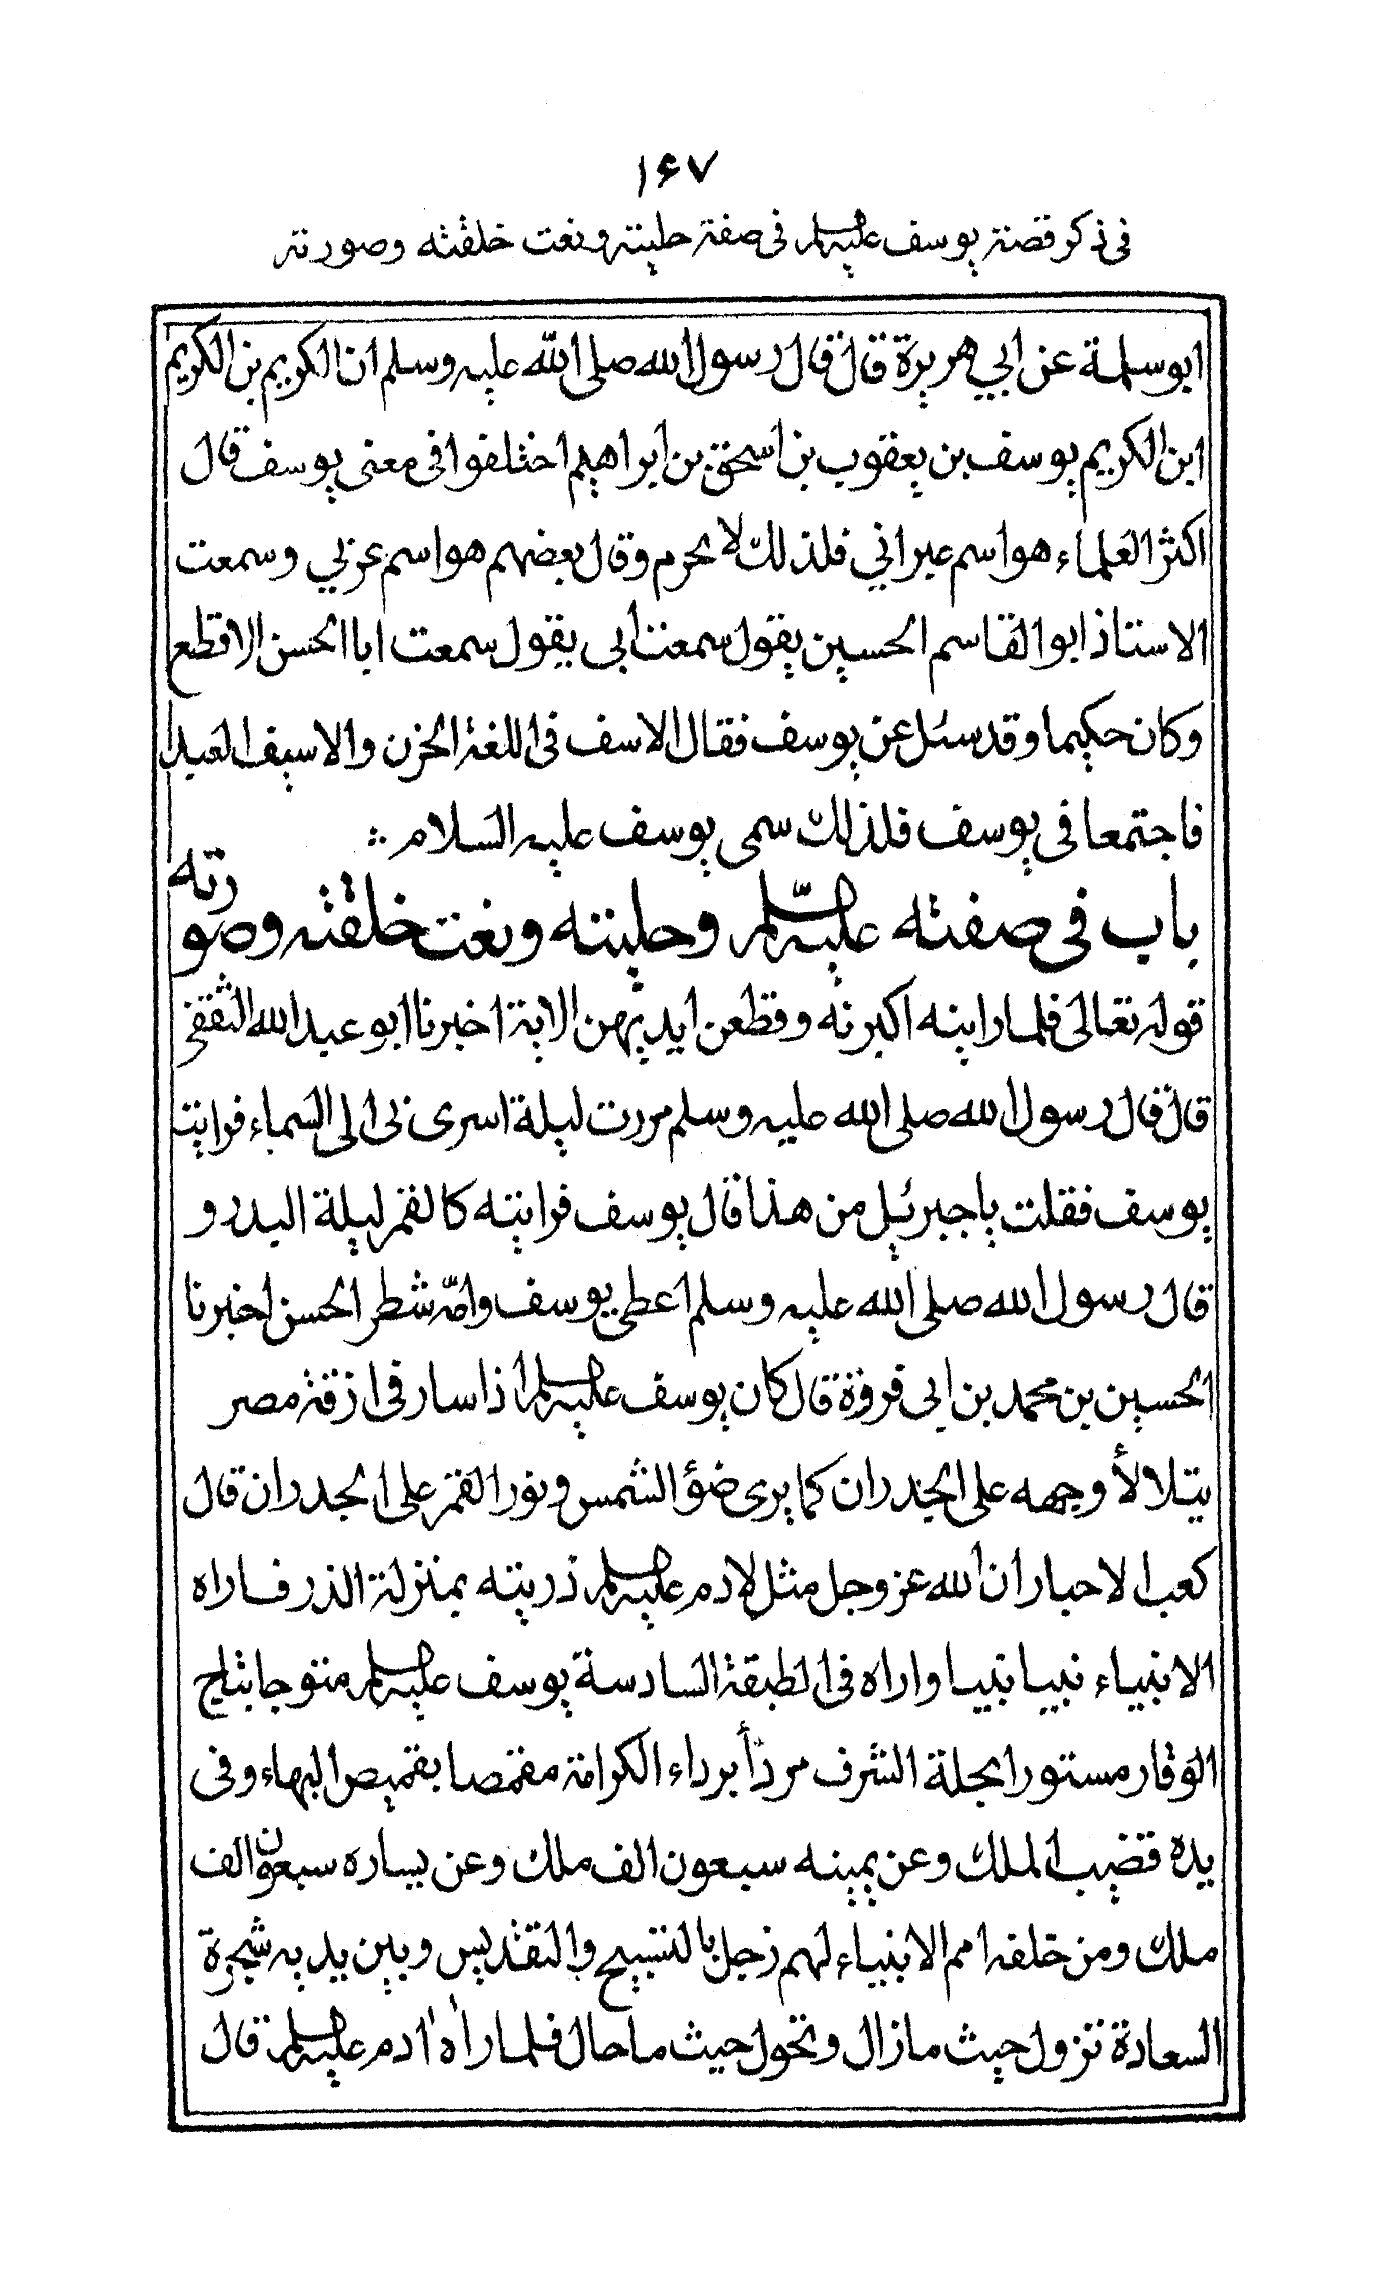 ١٦٧
فى ذكر قصة يوسف عليه السلم فى صفة حليته ونعت خلقته وصورته
ابو سلمة عن ابي هريرة قال قال رسول الله صلى الله عليه وسلم ان الكريم بن الكريم
ابن الكريم يوسف بن يعقوب بن اسحق بن ابراهيم اختلفوا فى معنى يوسف قال
اكثر العلماء هو اسم عبراني فلذلك لا يحرم وقال بعضهم هو اسم عربي وسمعت
الاستاذ ابو القاسم الحسين يقول سمعت أبى يقول سمعت ابا الحسن الاقطع
وكان حكيما وقد سئل عن يوسف فقال الاسف فى اللغة الحزن والاسيف العبد
فاجتمعا في يوسف فلذلك سمى يوسف عليه السلام
باب فى صفته عليه السلم وحليته ونعت خلقته وصورته
قوله تعالى فلما راينه اكبرنه وقطعن ايديهن الاية اخبرنا ابو عبد الله الثقفى
قال قال رسول الله صلى الله عليه وسلم مررت ليلة اسرى بى الى السماء فرايت
يوسف فقلت يا جبرئيل من هذا قال يوسف فرايته كالقمر ليلة البدر و
قال رسول الله صلى الله عليه وسلم اعطى يوسف وامّه شطر الحسن اخبرنا
الحسين بن محمد بن ابى فروة قال كان يوسف عليه السلم اذا سار فى ازقة مصر
يتلالأ وجهه على الجدران كما يرى ضؤ الشمس ونور القمر على الجدران قال
كعب الاحبار ان الله عز وجل مثل لادم عليه السلم ذريته بمنزلة الذر فاراه
الانبياء نبيا نبيا واراه فى الطبقة السادسة يوسف عليه السلم متوجا بتاج
الوقار مستورا بحلة الشرف مردأ برداء الكرامة مقمصا بقميص البهاء وفى
يده قضيب الملك وعن يمينه سبعون الف ملك وعن يساره سبعون الف
ملك ومن خلفه امم الانبياء لهم زجل بالتسبيح والتقديس وبين يديه شجرة
السعادة تزول حيث ما زال وتحول حيث ما حال فلما راه ادم عليه السلم قال